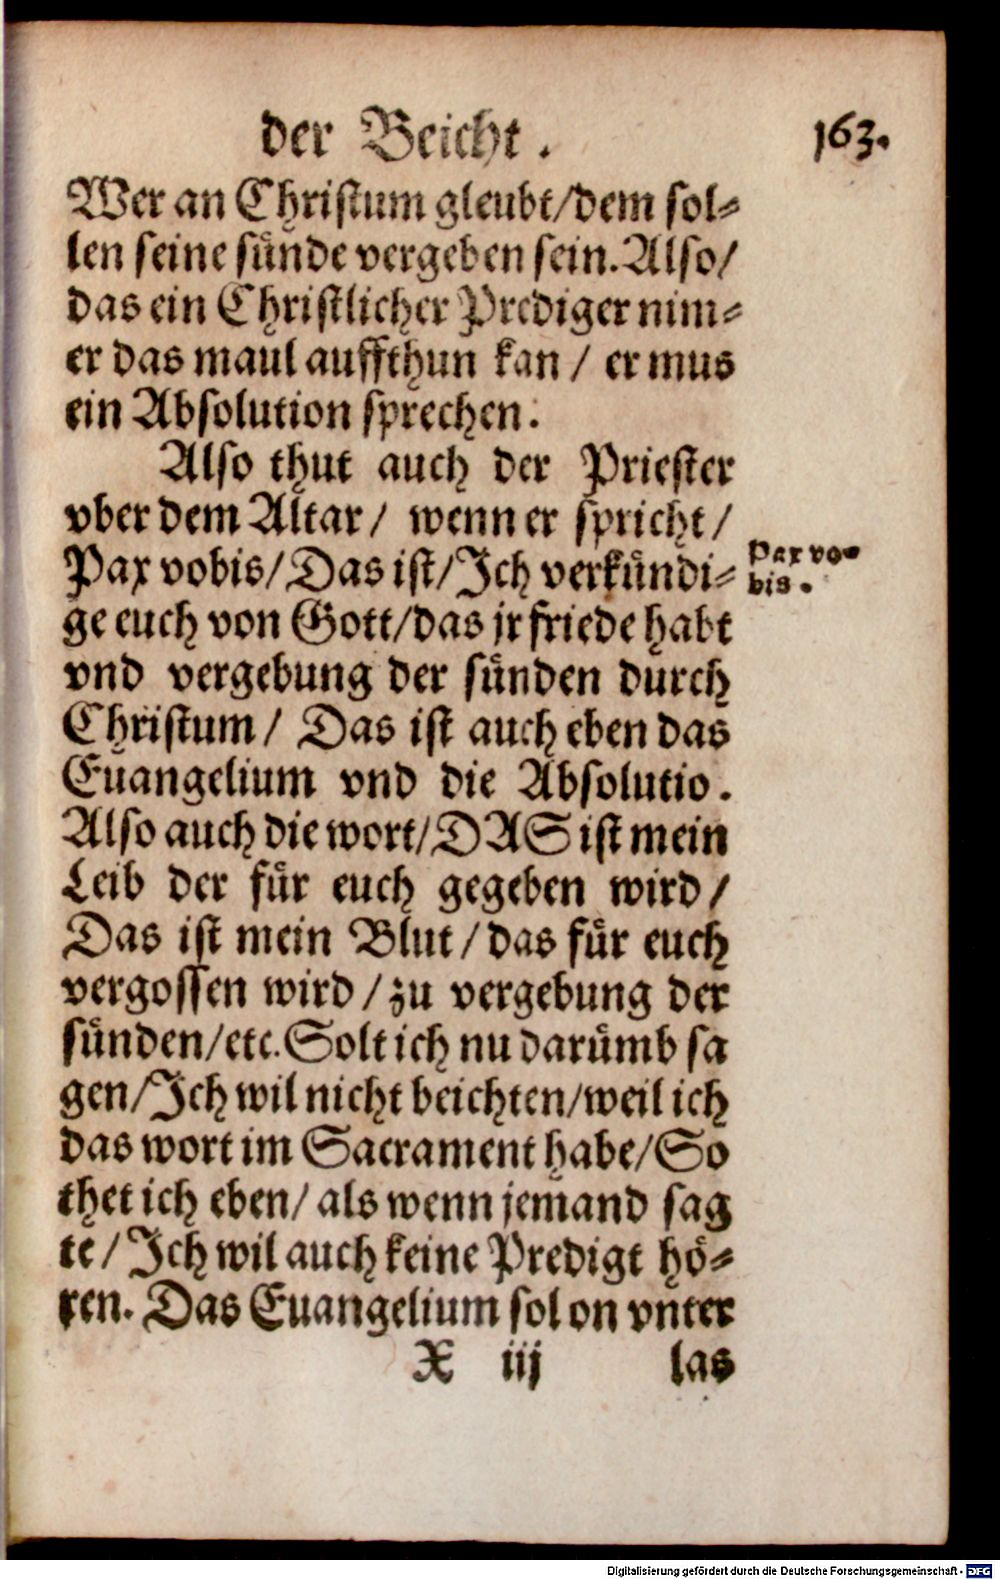 der Beicht. 163.
Wer an Christum gleubt/dem sol⸗
len seine sünde vergeben sein. Also/
das ein Christlicher Prediger nim⸗
er das maul auffthun kan/ er mus
ein Absolution sprechen.
Also thut auch der Priester
vber dem Altar/ wenn er spricht/
Pax vobis/Das ist/Ich verkündi⸗
Pax vo⸗
bis.
ge euch von Gott/das jr friede habt
vnd vergebung der sünden durch
Christum/ Das ist auch eben das
Euangelium vnd die Absolutio.
Also auch die wort/DAS ist mein
Leib der für euch gegeben wird/
Das ist mein Blut/das für euch
vergossen wird/zu vergebung der
sünden/etc. Solt ich nu darümb sa
gen/Ich wil nicht beichten/weil ich
das wort im Sacrament habe/So
thet ich eben/ als wenn jemand sag
te/Ich wil auch keine Predigt hö⸗
ren. Das Euangelium sol on vnter
X iij las
Digitalisierung gefördert durch die Deutsche Forschungsgemeinschaft - DFG